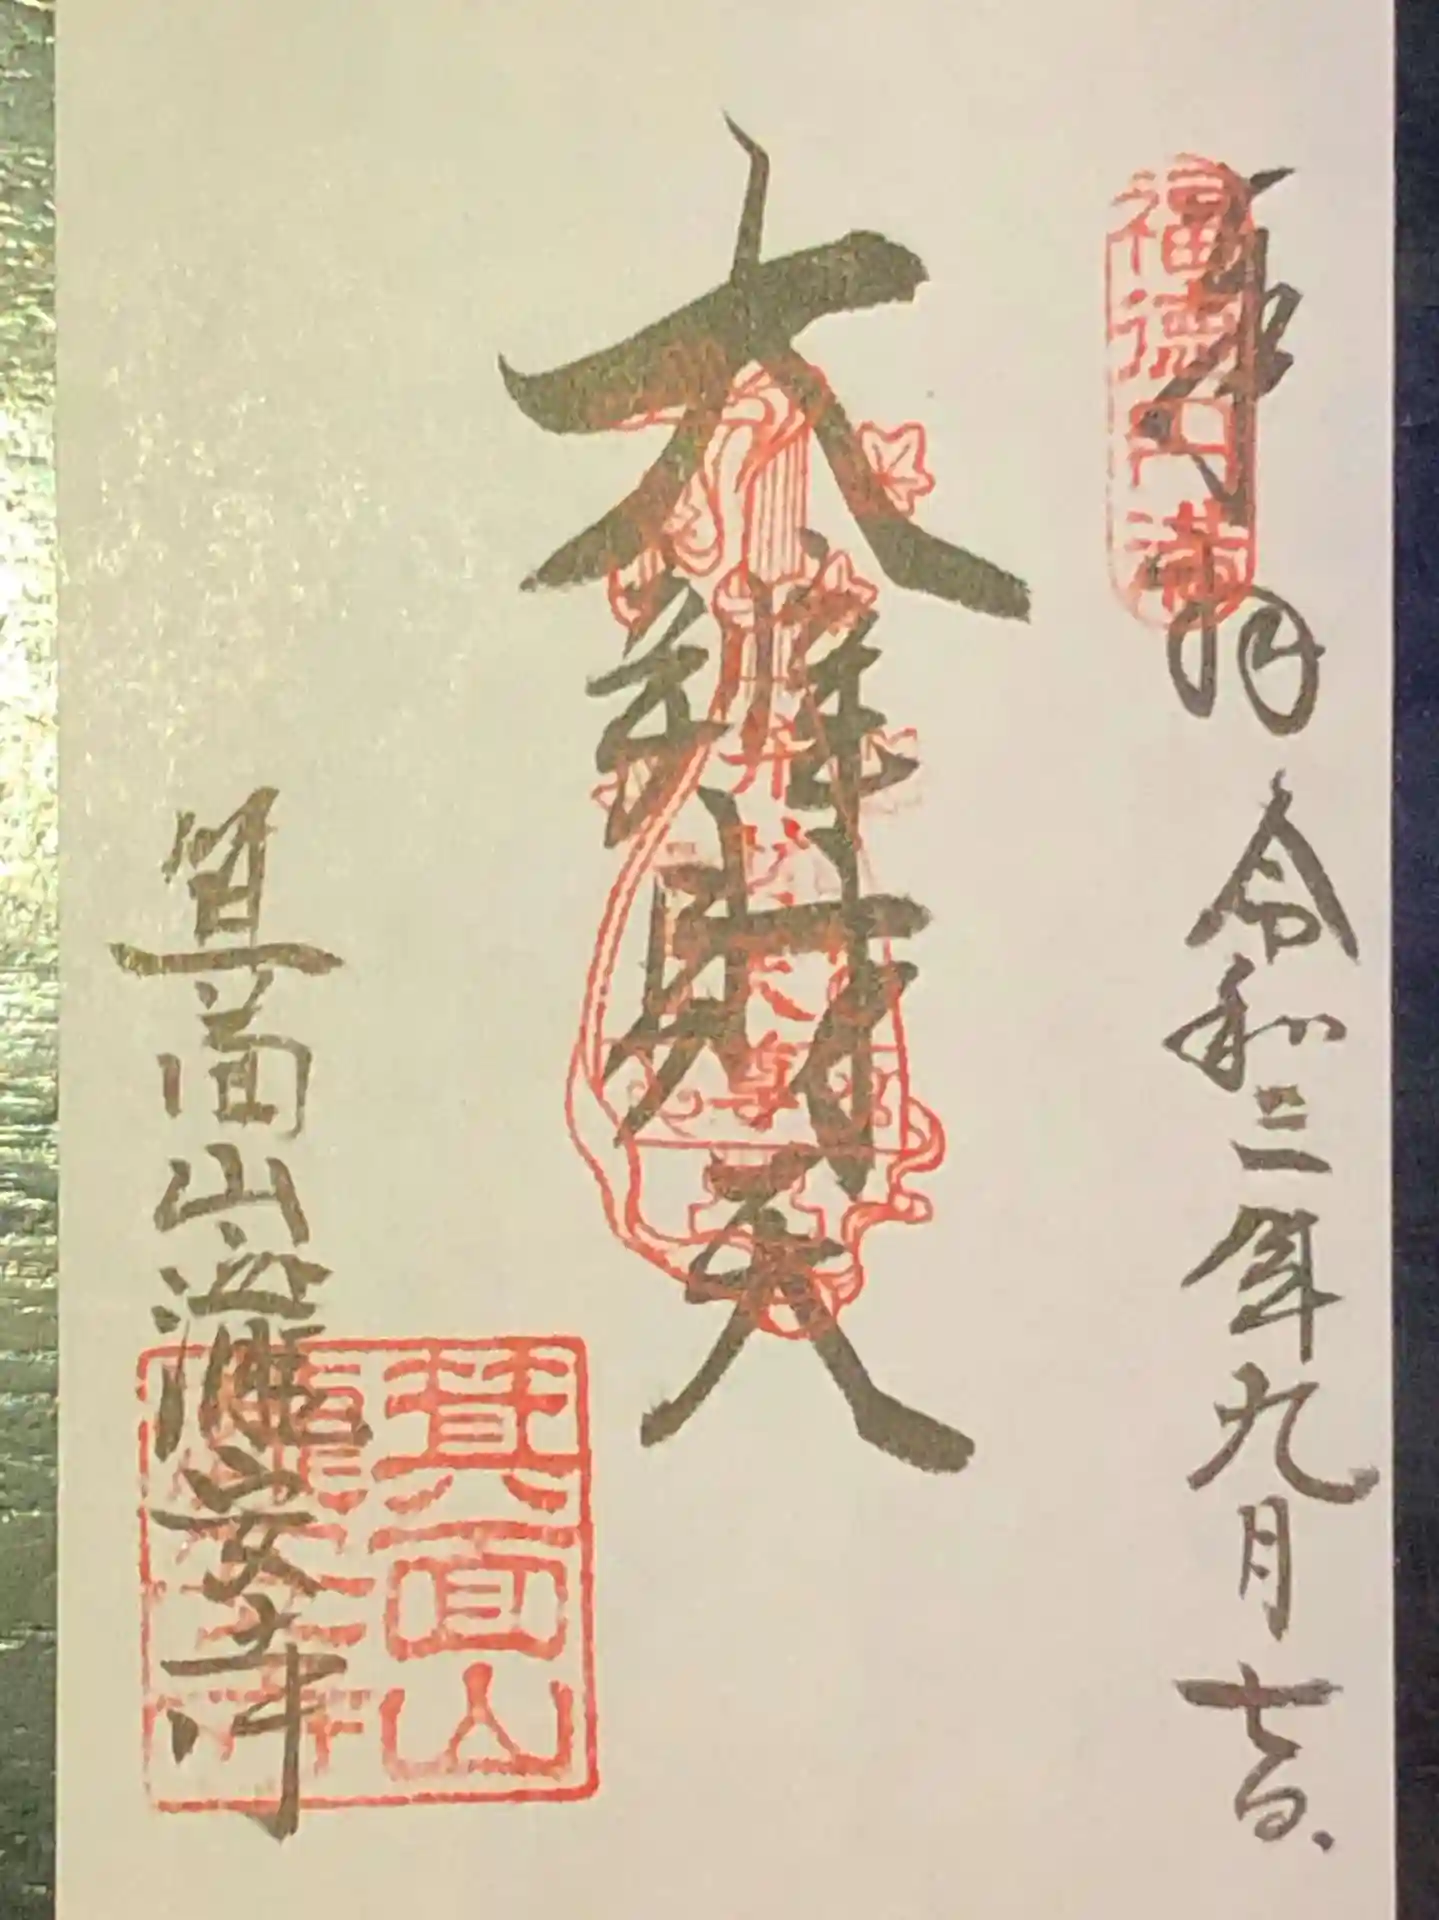 福徳円満
奉拝 令和三年九月七日
大辨財天
箕面山瀧安寺
箕面山
瀧安寺